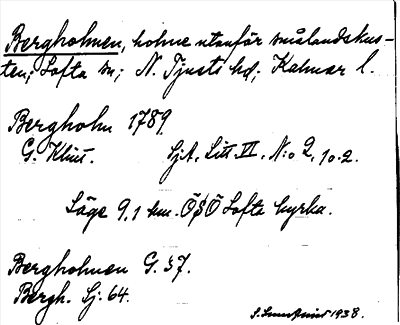 Bergholmen, holme utanför smålandskus-
ten; Lofta sn; N. Tjusts hd; Kalmar l.
Bergholm 1789
G. Klint. SjA. Litt. VI. N:o 2, 10.2.
Läge 9,1 km. ÖSÖ Lofta kyrka.
Bergholmen G. 37.
Bergh. Sj. 64.
1938.